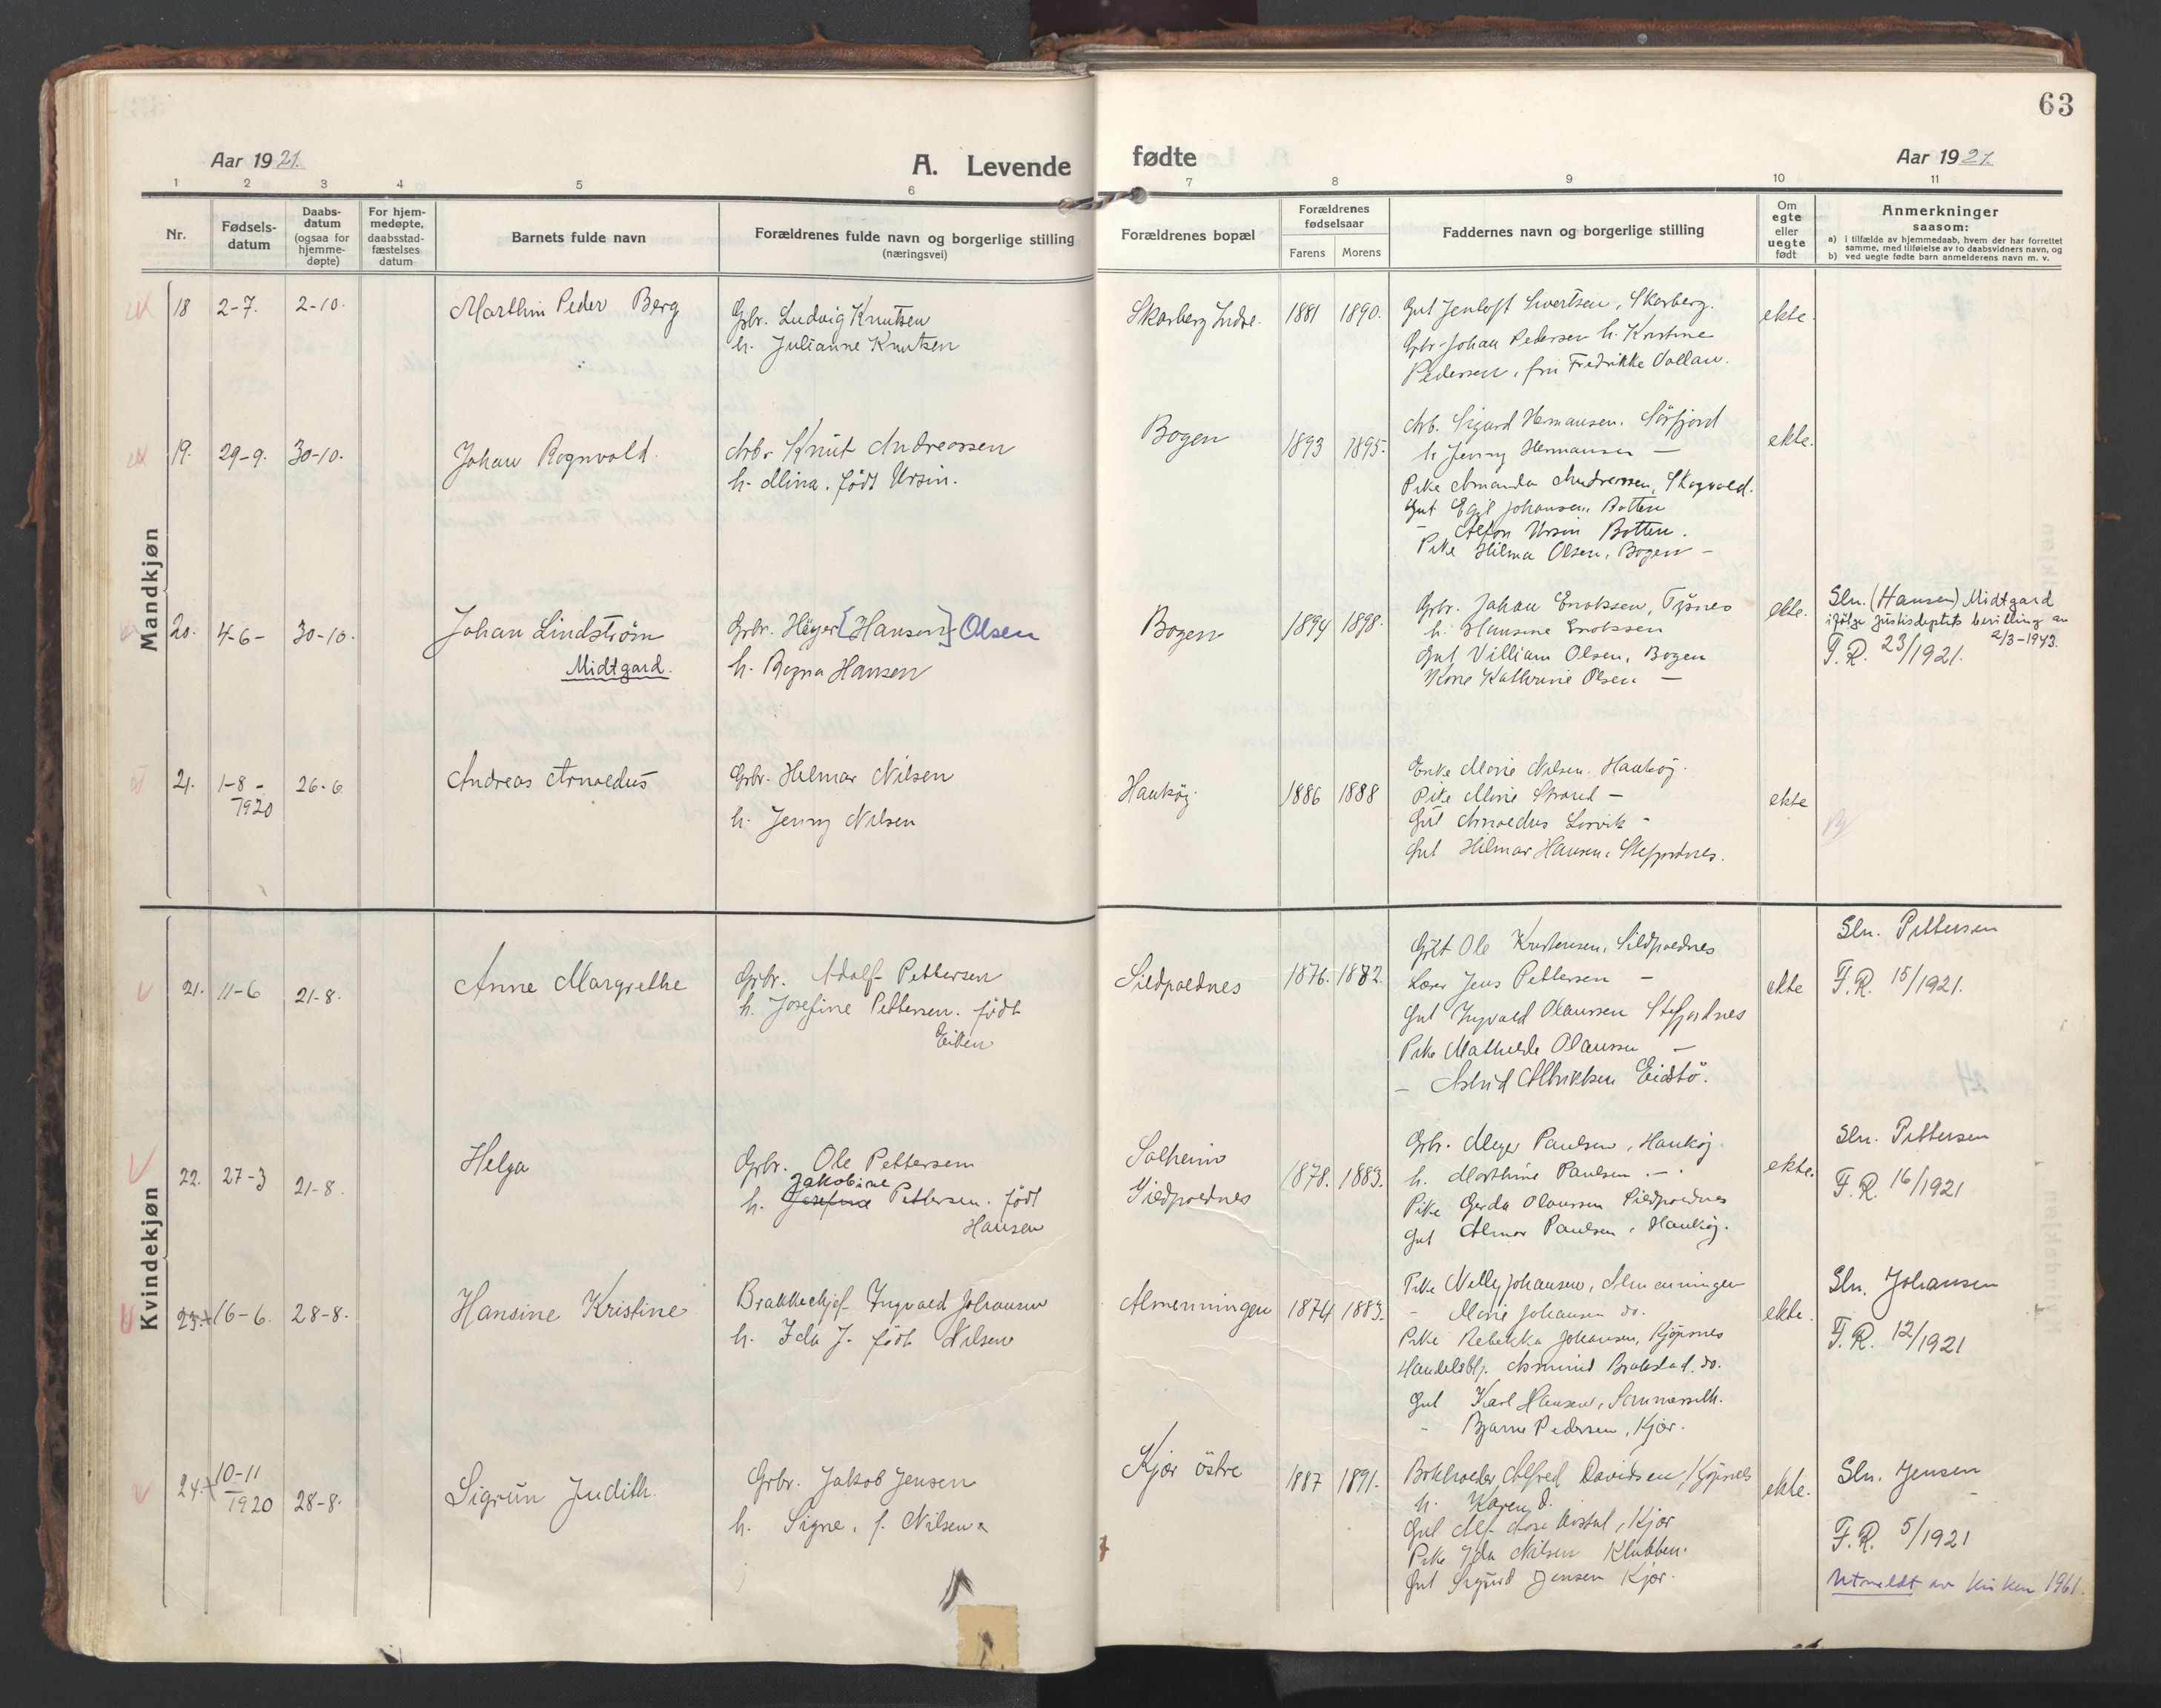 63
Aar 1921.
A. Levende fødte
Aar 1921.
1 2 3 4 5 6 7 8 9 10 11
Nr.
Fødsels-
datum
Daabs-
datum
(ogsaa for
hjemme-
døpte)
For hjem-
medøpte,
daabsstad-
fæstelses
datum
Barnets fulde navn
Forældrenes fulde navn og borgerlige stilling
(næringsvei)
Forældrenes bopæl
Forældrenes
fødselsaar
Farens Morens
Faddernes navn og borgerlige stilling
Om
egte
eller
uegte
født
Anmerkninger
saasom:
a) i tilfælde av hjemmedaab, hvem der har forrettet
samme, med tilføielse av to daabsvidners navn, og
b) ved uegte fødte barn anmelderens navn m. v.
Mandkjøn
18 2-7. 2-10. Marthin Peder Berg
Gbr. Ludvig Knutsen
h. Julianne Knutsen
Skarberg Indre. 1881 1890.
Gut Jentoft Sivertsen, Skarberg.
Gbr. Johan Pedersen h. Kristine
Pedersen, fru Fredrikke Vollan.
ekte.
19. 29-9. 30-10. Johan Rognvald.
Arb. Knut Andreassen
h. Alina. født Ursin.
Bogen 1893 1895.
Arb. Sigurd Hermansen. Sörfjord
h. Jenny Hermansen —
Pike Amanda Andreassen, Skogvold.
Gut Egil Johansen, Botten
- Alfon Ursin Botten.
Pike Hilma Olsen, Bogen -
ekte.
20. 4-6- 30-10. Johan Lindström
Midtgard.
Grbr. Häger [Hansen] Olsen
h. Ragna Hansen
Bogen 1894 1898.
Grbr. Johan Enoksen, Tysnes
h. Hansine Enoksen
Gut Villiam Olsen, Bogen
Kone Kathrine Olsen —
ekte.
Sln. (Hansen) Midtgard
ifølge justisdeptets bevilling av
2/3-1943.
F.R. 23/1921.
21. 1-8-
1920 26-6 Andreas Arnoldus
Grbr. Helmar Nilsen
h. Jenny Nilsen
Hauköy. 1886 1888
Enke Marie Nilsen. Hauköy.
Pike Marie Strand —
Gut Arnoldus Lorvik -
Gut Hilmar Hansen, Stefjordnes.
ekte
Kvindekjøn
21. 11-6 21-8. Anne Margrethe
Grbr. Adolf Pettersen
h. Josefine Pettersen. født
Eiken
Sildpoldnes 1876. 1882.
Gift Ole Kristensen, Sildpoldnes
Lærer Jens Pettersen —
Gut Ingvald Olaussen Stefjordnes
Pike Mathilde Olaussen —
- Astrid Albriktsen Eidstö.
ekte
Sln. Pettersen
F.R. 15/1921.
22. 27-3 21-8. Helga
Grbr. Ole Pettersen
Jakobine
h. Josefine Pettersen. født
Hansen
Solheim
Sildpoldnes
1878. 1883.
Grbr. Meyer Paulsen, Hauköy.
h. Marthine Paulsen. — .
Pike Gerda Olaussen Sildpoldnes
Gut Almar Paulsen, Hauköy.
ekte.
Sln. Pettersen
F.R. 16/1921
23. 16-6. 28-8. Hansine Kristine
Brakkechef Ingvald Johansen
h. Ida J. født Nilsen
Almenningen 1874 1883.
Pike Nelly Johansen, Almenningen
- Marie Johansen do.
Pike Rebekka Johansen, Kjöpsnes
Handelsbtj. Asmund Brokstad. do.
Gut Karl Hansen, Sommerseth.
- Bjarne Pedersen, Kjær.
ekte.
Sln. Johansen
F.R. 12/1921
24. 10-11
1920 28-8. Sigrun Judith.
Grbr. Jakob Jensen
h. Signe, f. Nilsen.
Kjær östre 1887 1891.
Bokholder Alfred Davidsen, Kjöpsnes
h. Karen D.
Gut Alf Kjær
Pike Ida Nilsen Klubben.
Gut Sigurd Jensen Kjær.
ekte.
Sln. Jensen
F.R. 5/1921
Utmeldt av kirken 1961.